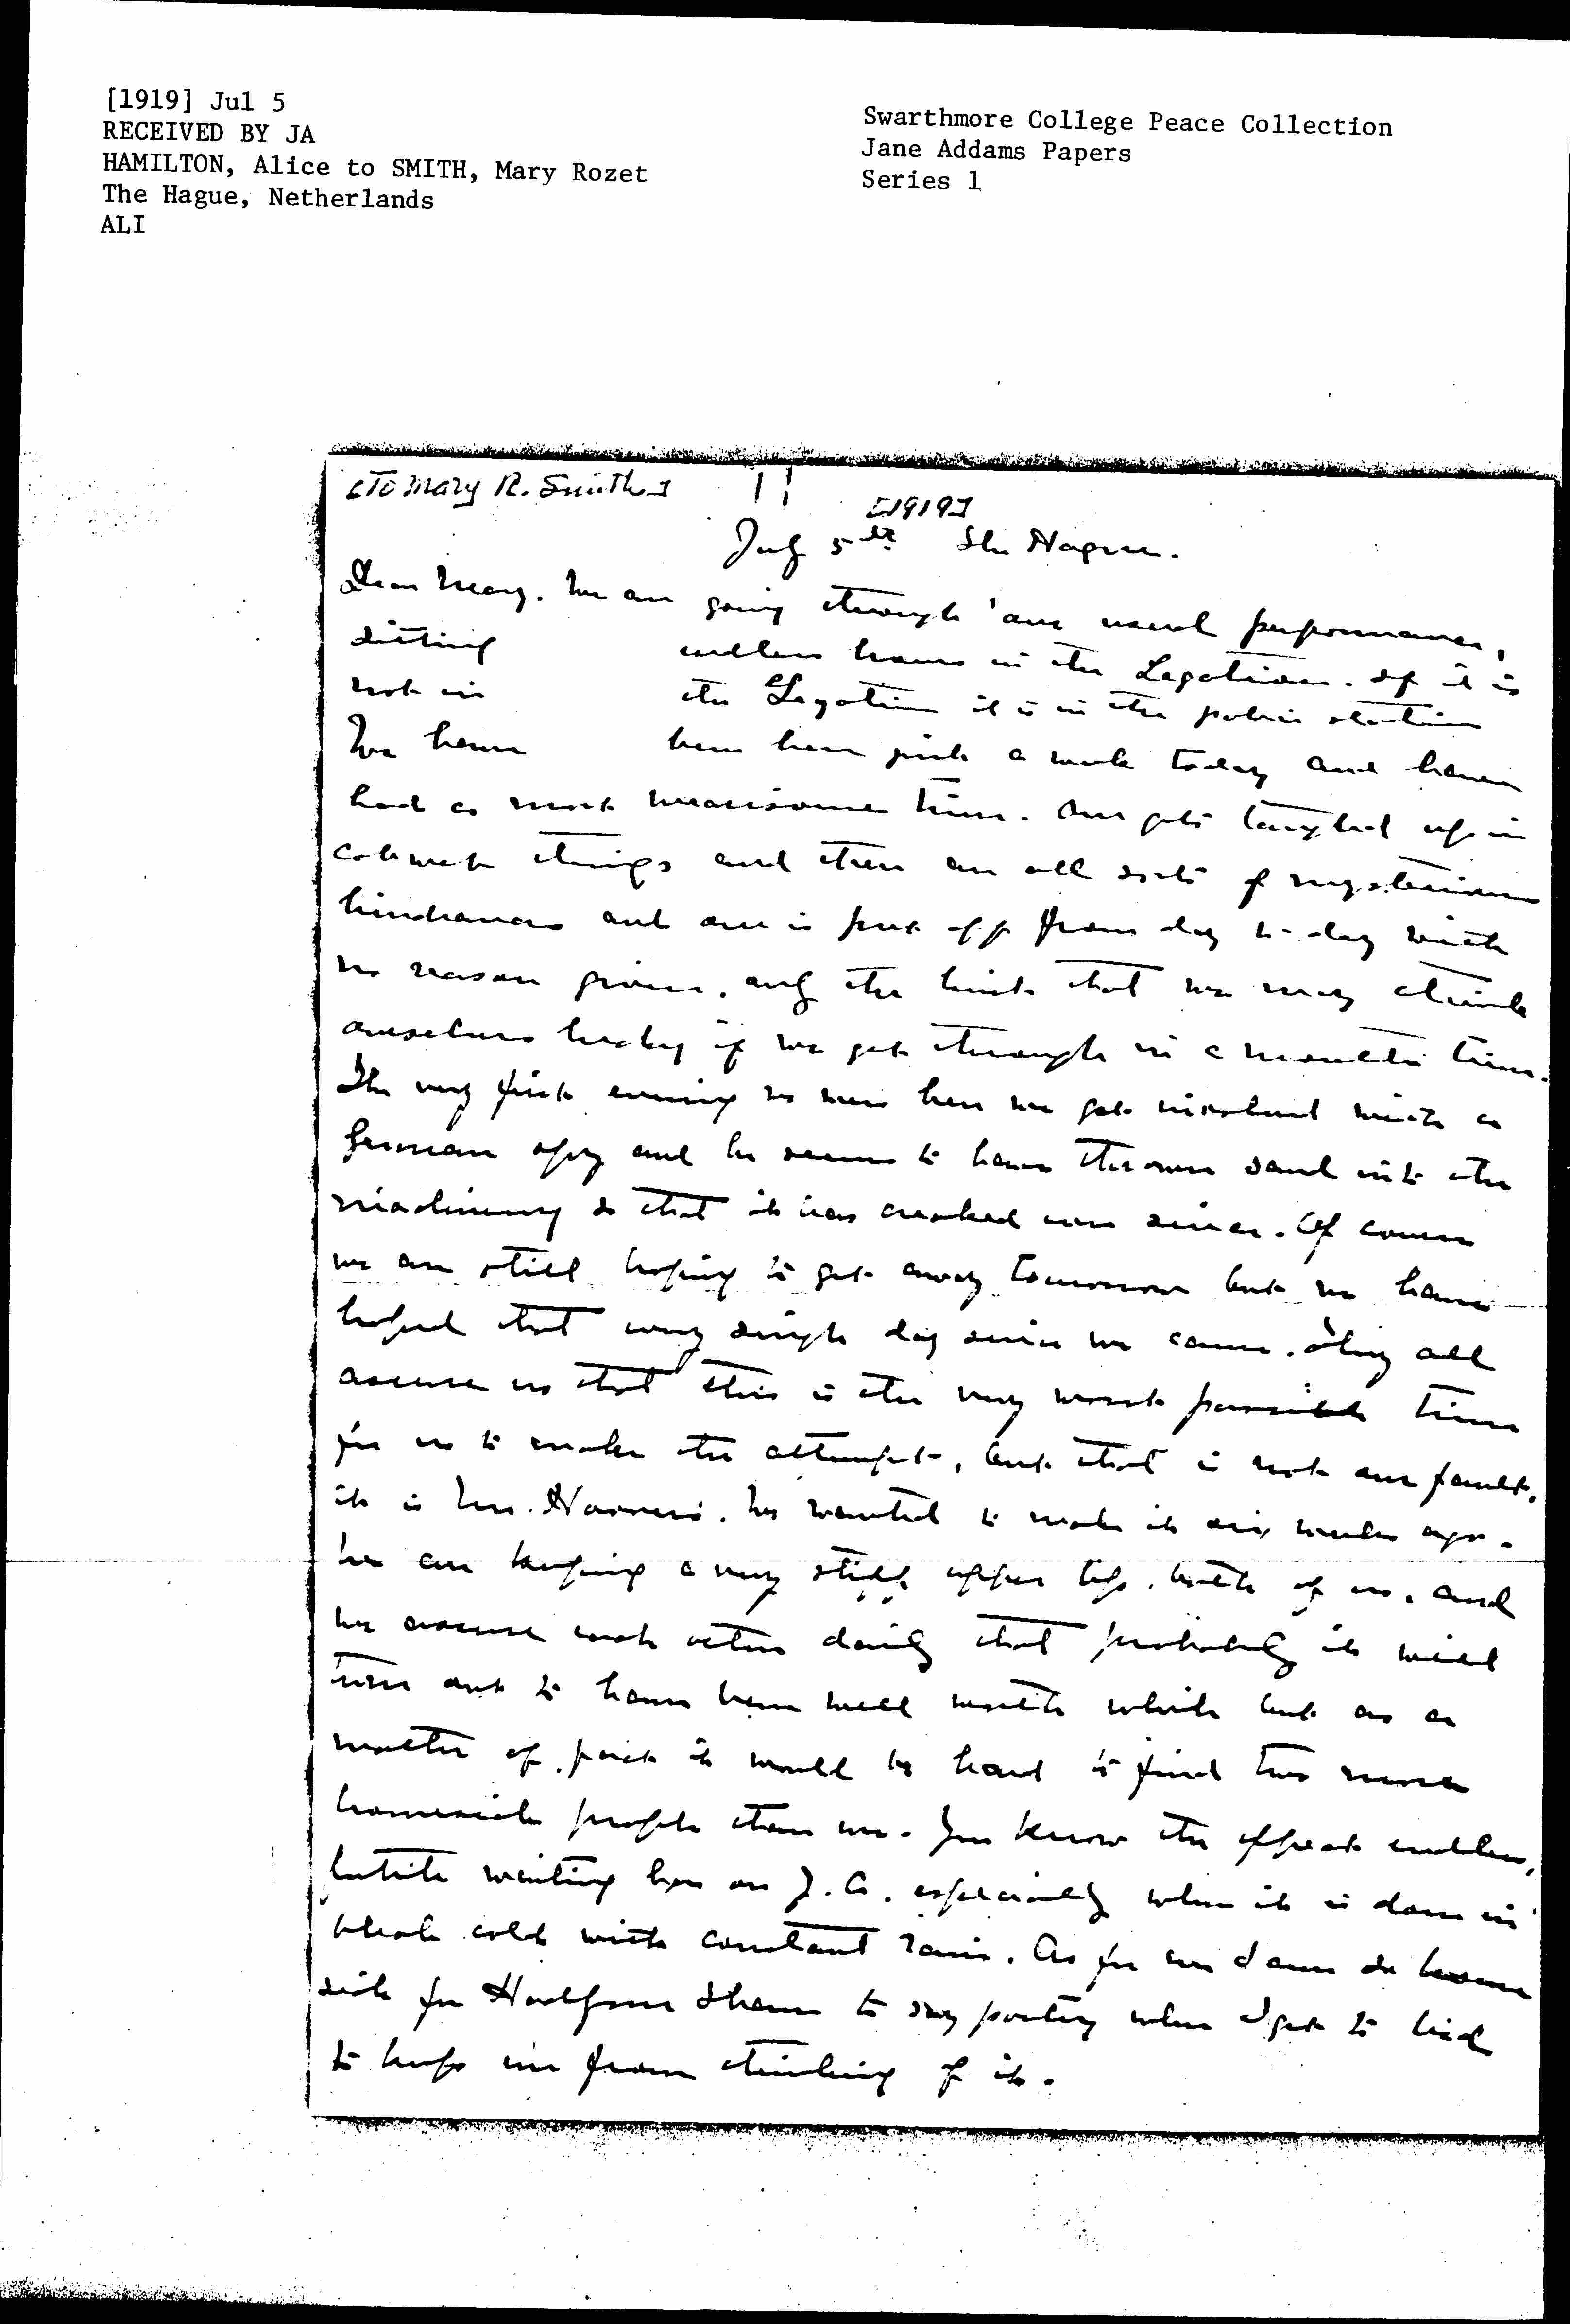 [1919] Jul 5
RECEIVED BY JA
HAMILTON, Alice to SMITH, Mary Rozet
The Hague, Netherlands
ALI
Swarthmore College Peace Collection
Jane Addams Papers
Series 1
[To Mary R. Smith]
[1919]
July 5th The Hague.
Dear Mary. We are going through our usual performance,
sitting endless hours in the Legation. If it is
not in the Legation it is in the police station
We have been here just a week today and have
had a most wearisome time. One gets tangled up in
cobweb things and there are all sorts of mysterious
hindrances and one is put off from day to day with
no reason given, only the hint that we may think
ourselves lucky if we get through in a month's time.
The very first evening we were here we got involved with a
German spy and he seems to have thrown sand into the
machinery so that it has creaked ever since. Of course
we are still hoping to get away tomorrow but we have
hoped that every single day since we came. They all
assure us that this is the very worst possible time
for us to make the attempt, but that is not our fault,
it is Mr. Hoover's. We wanted to make it six weeks ago.
We are keeping a very stiff upper lip, both of us, and
we assure each other daily that probably it will
turn out to have been well worth while but as a
matter of fact it would be hard to find two more
homesick people than we. You know the effect endless,
futile waiting has on J. A. especially when it is done in
bleak cold with constant rain. As for me I am so home
sick for Hadlyme I have to say poetry when I get to bed
to keep me from thinking of it.